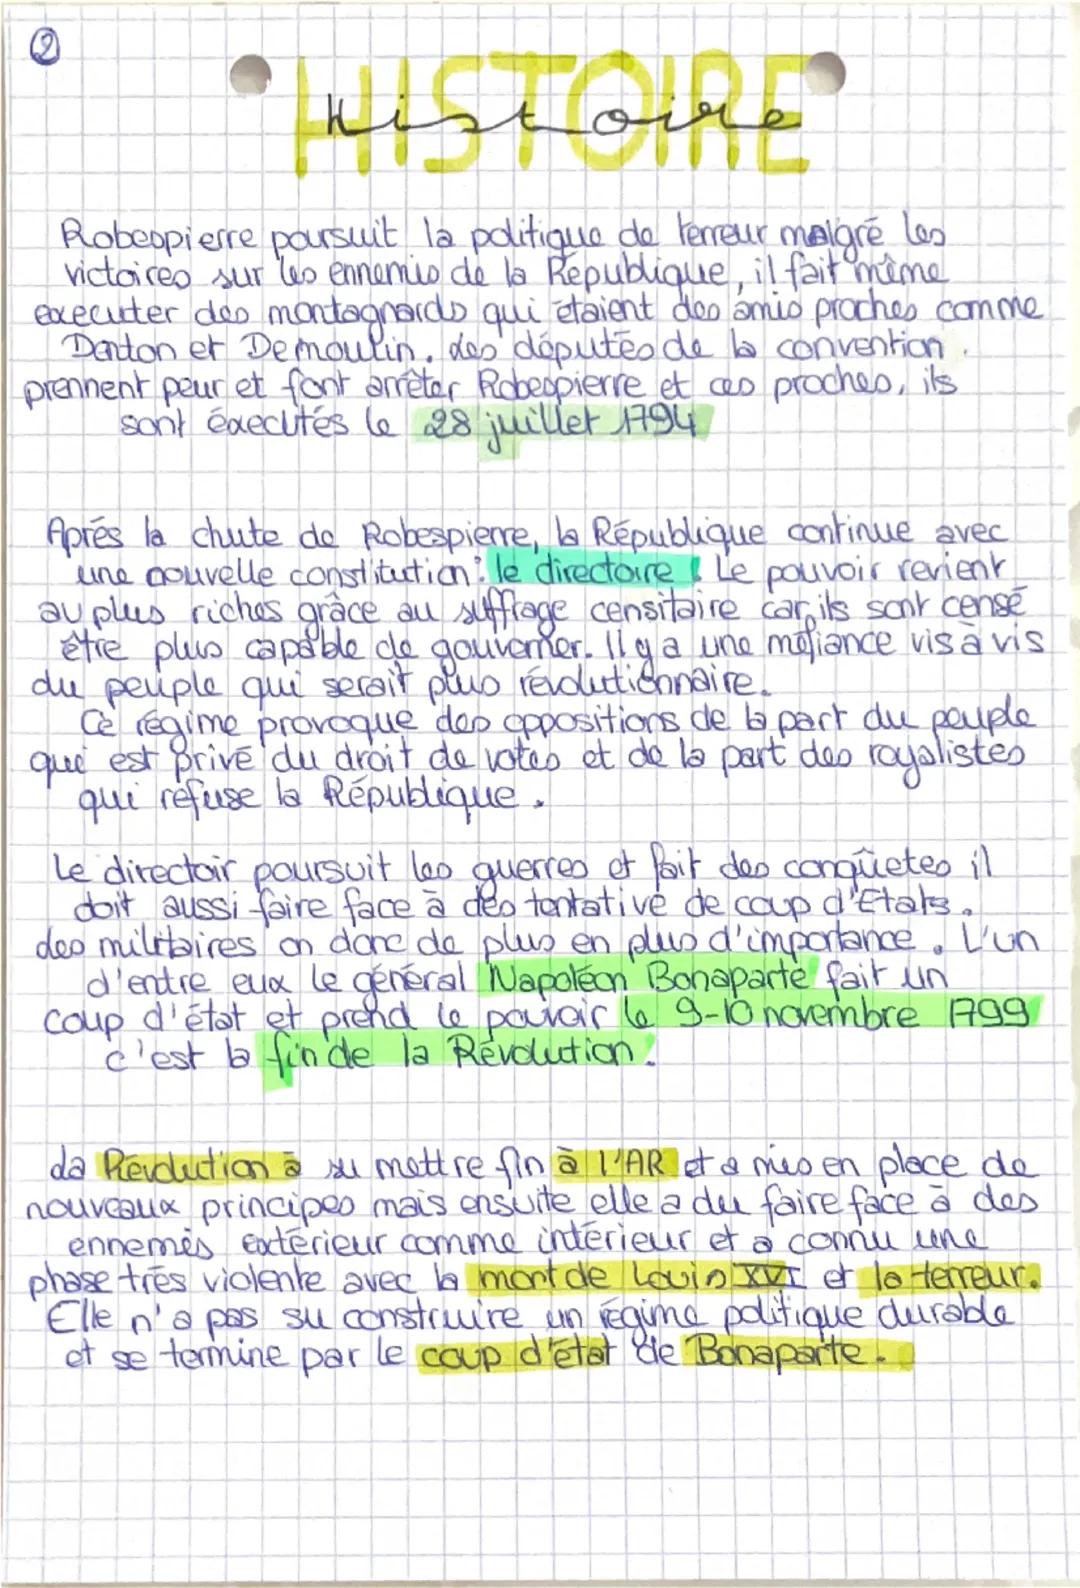 2
HISTOIRE
Histoire
Robespierre poursuit la politique de terreur malgré les
victoires sur les ennemis de la République, il fait même
executer des montagnards qui étaient des amis proches comme
Danton et Demoulin. des députés de la convention
prennent peur et font arrêter Robespierre et ces proches, ils
sont éxecutés le 28 juillet 1794
Après la chute de Robespierre, la République continue avec
une nouvelle constitution: le directoire. Le pouvoir revient
au plus riches grâce au suffrage censitaire car ils sont censé
être plus capable de gouverner. Il y a une méfiance vis à vis
du peuple qui serait plus révolutionnaire.
Ce régime provoque des oppositions de la part du peuple
qui est privé du droit de votes et de la part des royalistes
qui refuse la République.
Le directoir poursuit les guerres et fait des conqûetes il
doit aussi faire face à des tentative de coup d'Etats.
des militaires on donc de plus en plus d'importance. L'un
d'entre eux le général Napoléon Bonaparte fait un
coup d'état et prend le pouvoir le 9-10 novembre 1799
c'est la fin de la Révolution.
La Révolution a su mettre fin à l'AR et a mis en place de
nouveaux principes mais ensuite elle a du faire face à des
ennemis extérieur comme intérieur et a connu une
phase très violente avec la mort de Louis XVI et la terreur.
Elle n'a pas su construire un régime politique durable
et se termine par le coup d'état de Bonaparte.